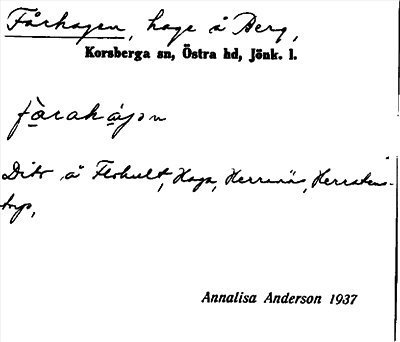 Fårhagen, hage å Berg,
Korsberga sn, Östra hd, Jönk. l.
fårahágən
Dito å Flohult, Haga, Herrnäs, Herrstens-
torp,
Annalisa Anderson 1937